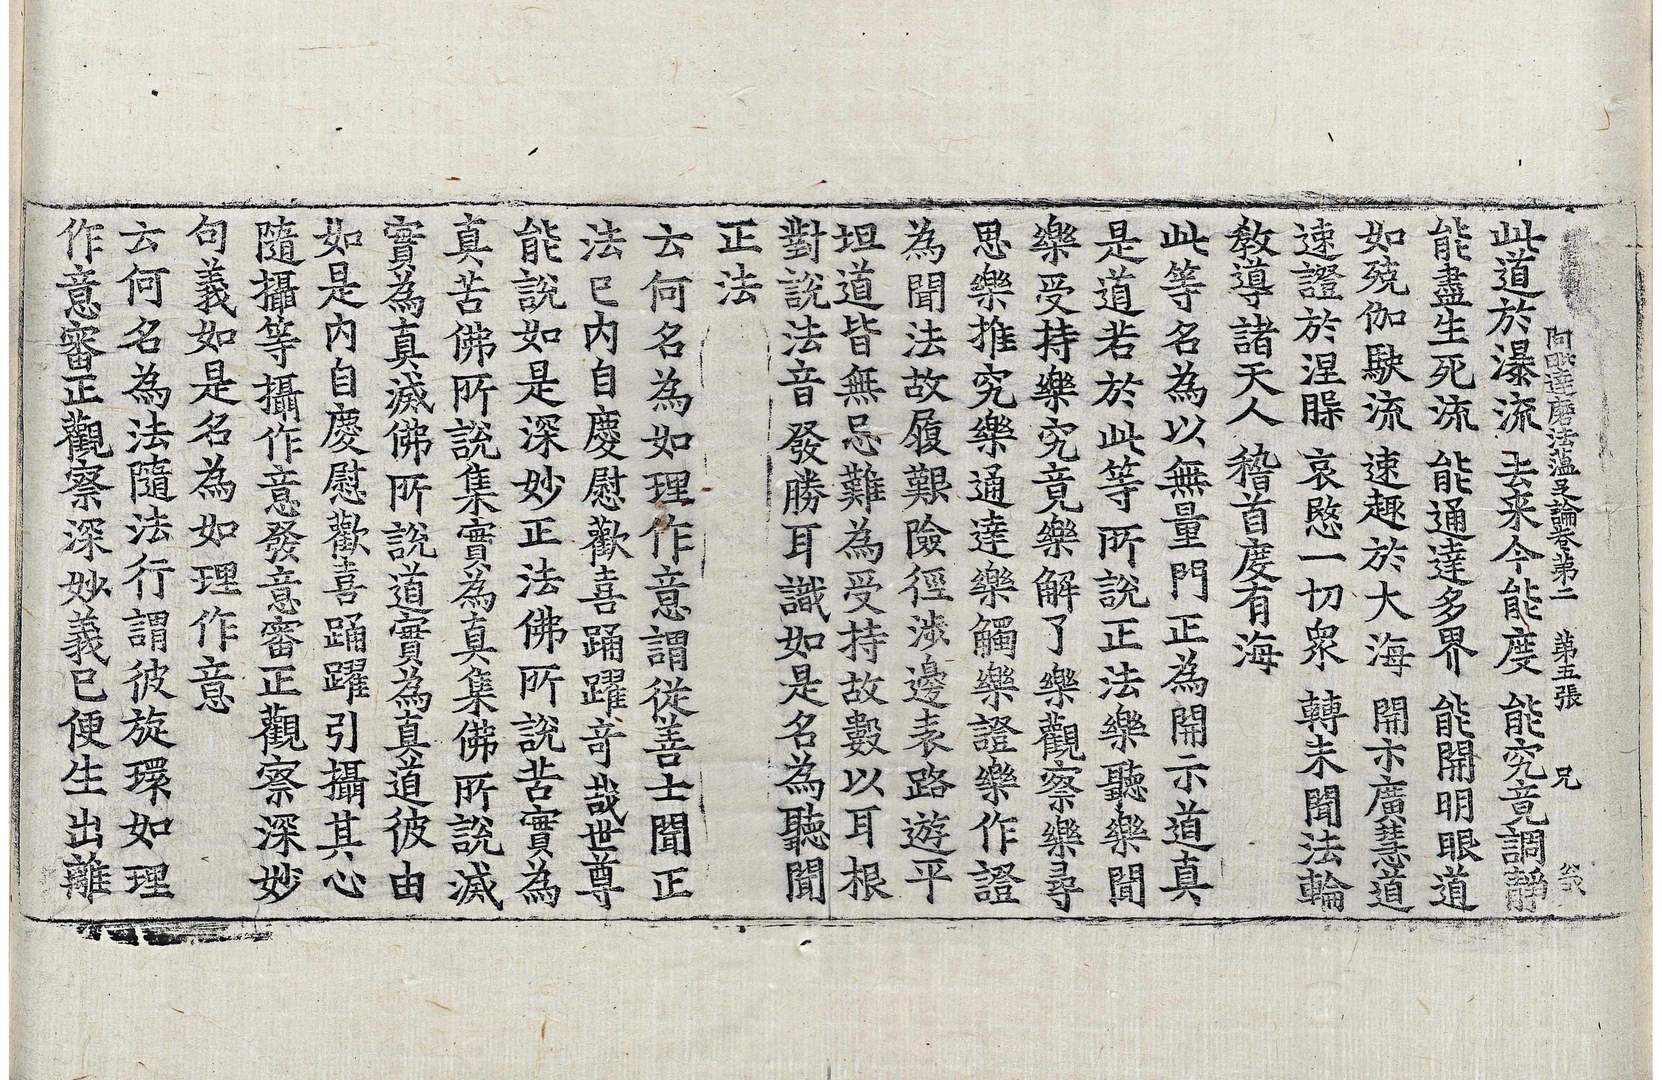 阿毗達磨法蘊足論卷第二 第五張 兄
此道於瀑流 去来今能度 能究竟調靜
能盡生死流 能通達多界 能開明眼道
如殑伽駛流 速趣於大海 開示廣慧道
速證於涅槃 哀愍一切衆 轉未聞法輪
教導諸天人 稽首度有海
此等名為以無量門正為開示道真
是道若於此等所說正法樂聽樂聞
樂受持樂究竟樂解了樂觀察樂尋
思樂推究樂通達樂觸樂證樂作證
為聞法故履艱險徑涉邊表路遊平
坦道皆無忌難為受持故數以耳根
對說法音發勝耳識如是名為聽聞
正法
云何名為如理作意謂從善士聞正
法已內自慶慰歡喜踊躍奇哉世尊
能說如是深妙正法佛所說苦實為
真苦佛所說集實為真集佛所說滅
實為真滅佛所說道實為真道彼由
如是內自慶慰歡喜踊躍引攝其心
隨攝等攝作意發意審正觀察深妙
句義如是名為如理作意
云何名為法隨法行謂彼旋環如理
作意審正觀察深妙義已便生出離